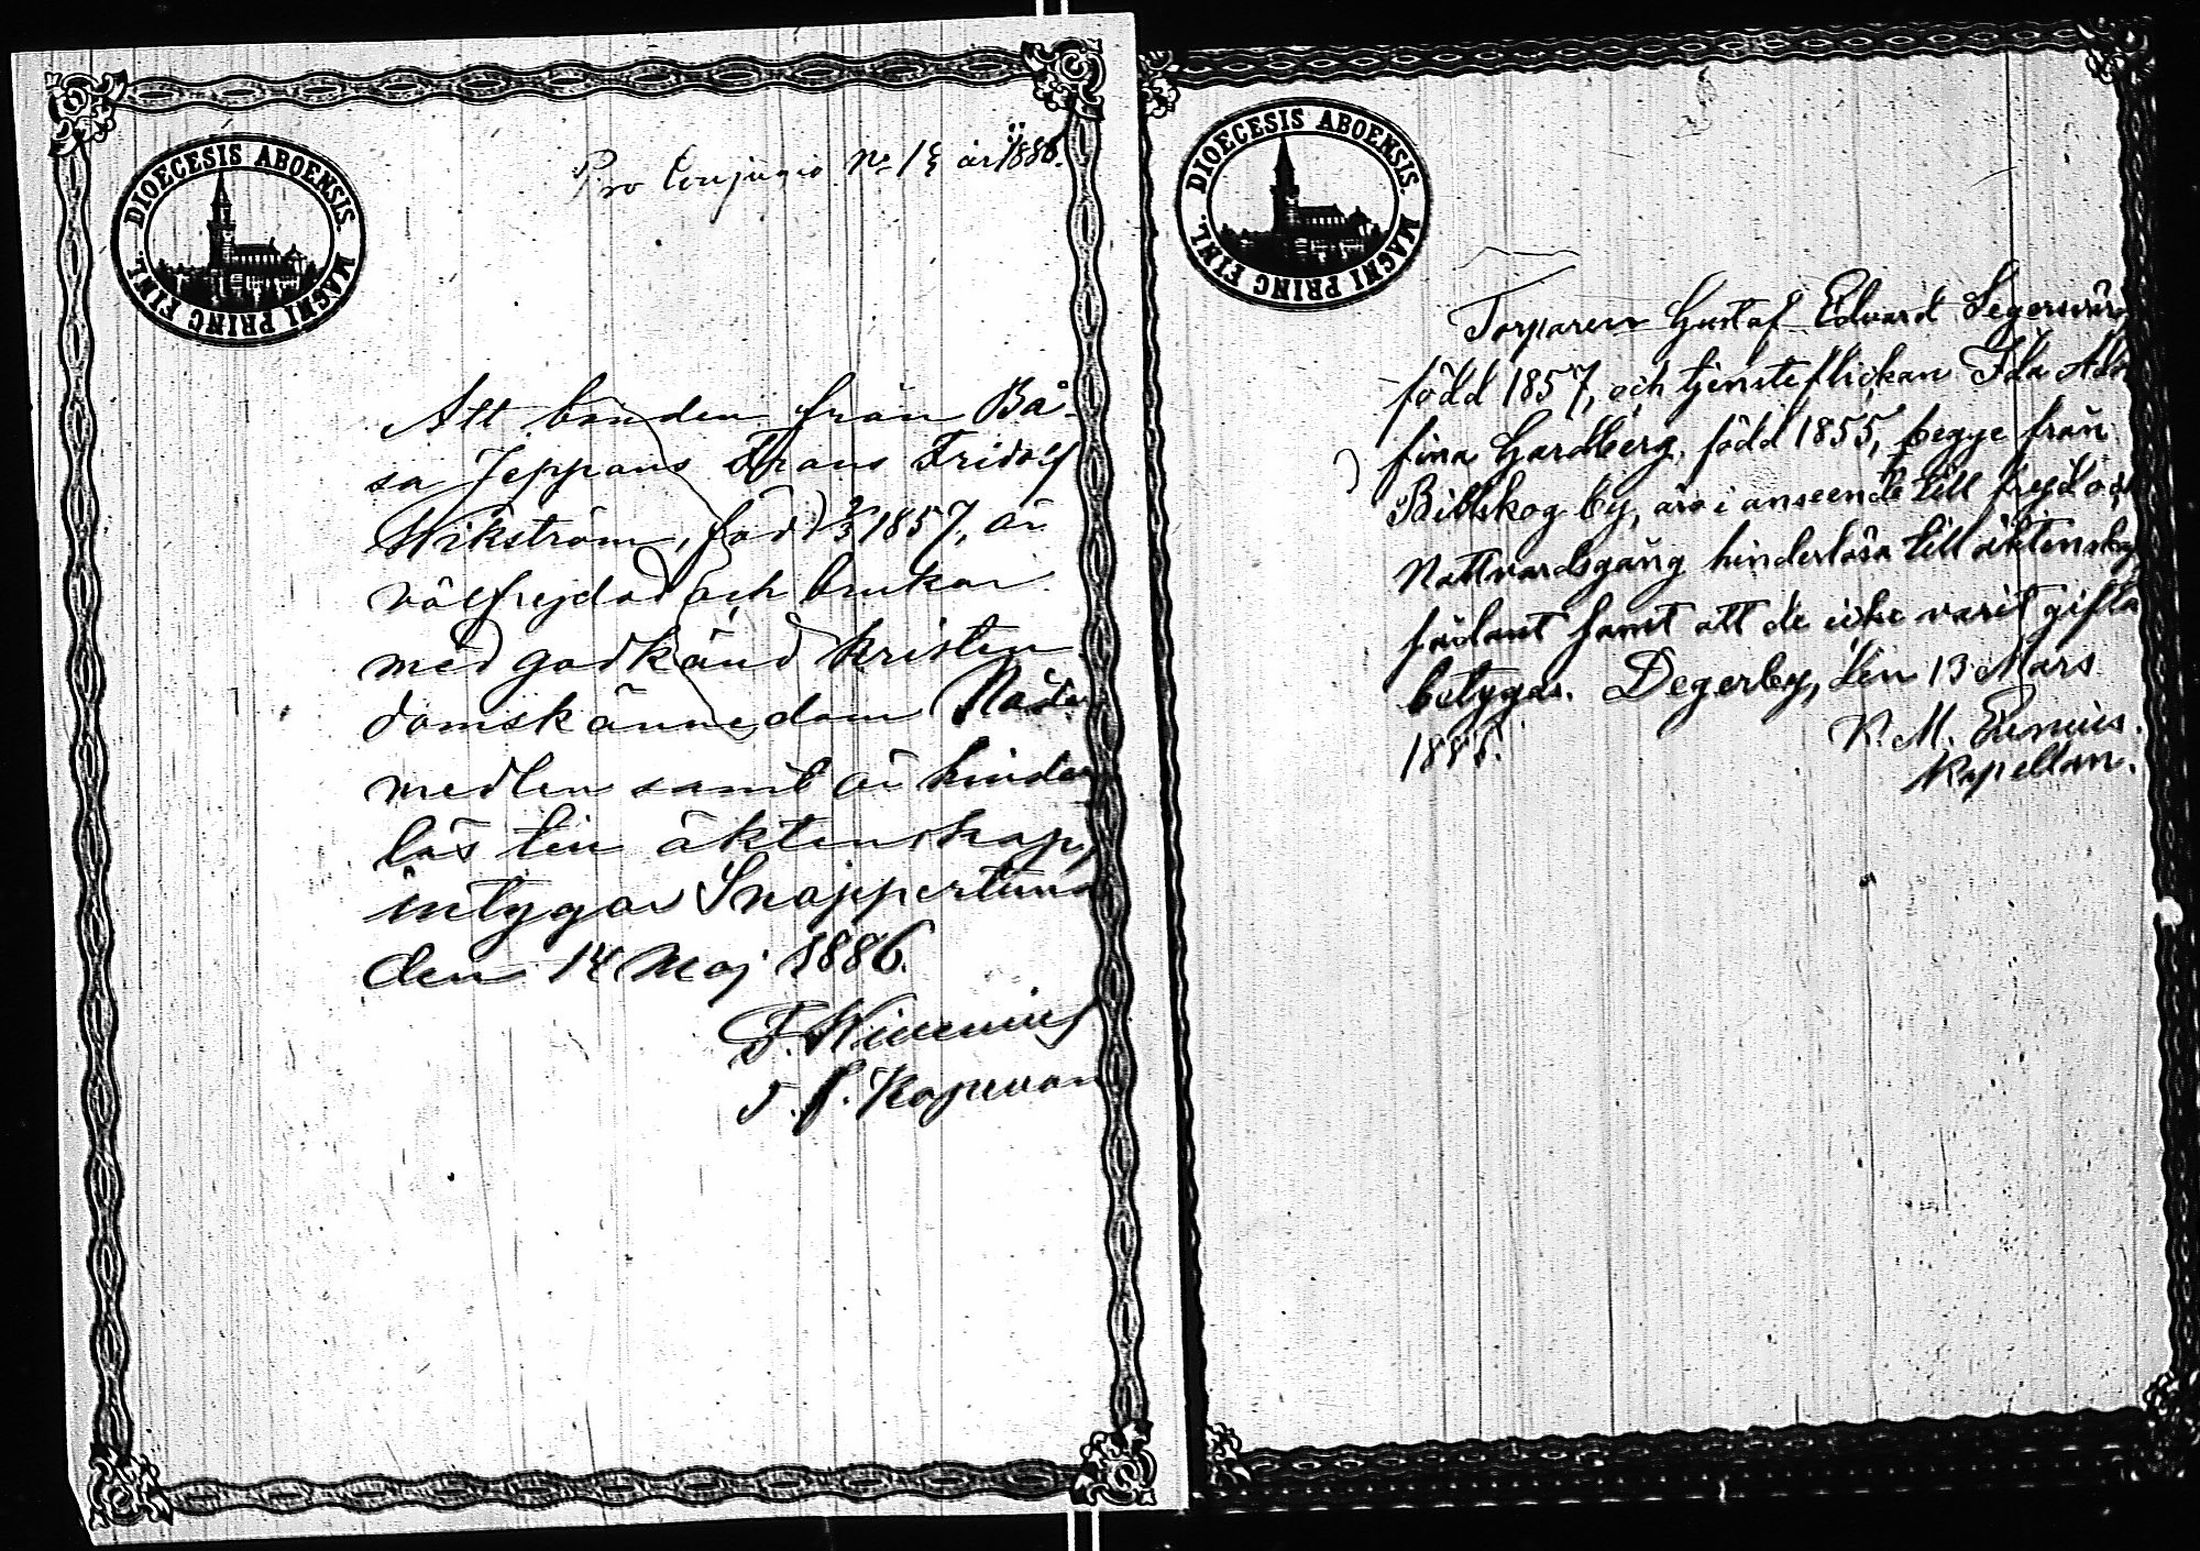 DIOECESIS ABOENSIS. MAGNI PRINC FINL.
Pro Conjugio No 13 år 1886.
Att bonden från Bå-
sa Jeppans Frans Fridolf
Wikström, född 2/3 1857, är
välfrejdad och brukar
med godkänd kristen
domskännedom Nåde
medlen samt är hinder
lös till äktenskap,
intygar Snappertuna
den 14 Maj 1886.
t. f. Kapellan
DIOECESIS ABOENSIS. MAGNI PRINC FINL.
Torparen Gustaf Edvard Segersvärd
född 1857, och tjensteflickan Ida Adol
fina Gardberg, född 1855, begge från
Billskog by, äro i anseende till frejd och
Nattvardsgång hinderlösa till äktenskap
sådant samt att de icke varit gifta
betygas. Degerby, den 13 Mars
K. M.
Kapellan.